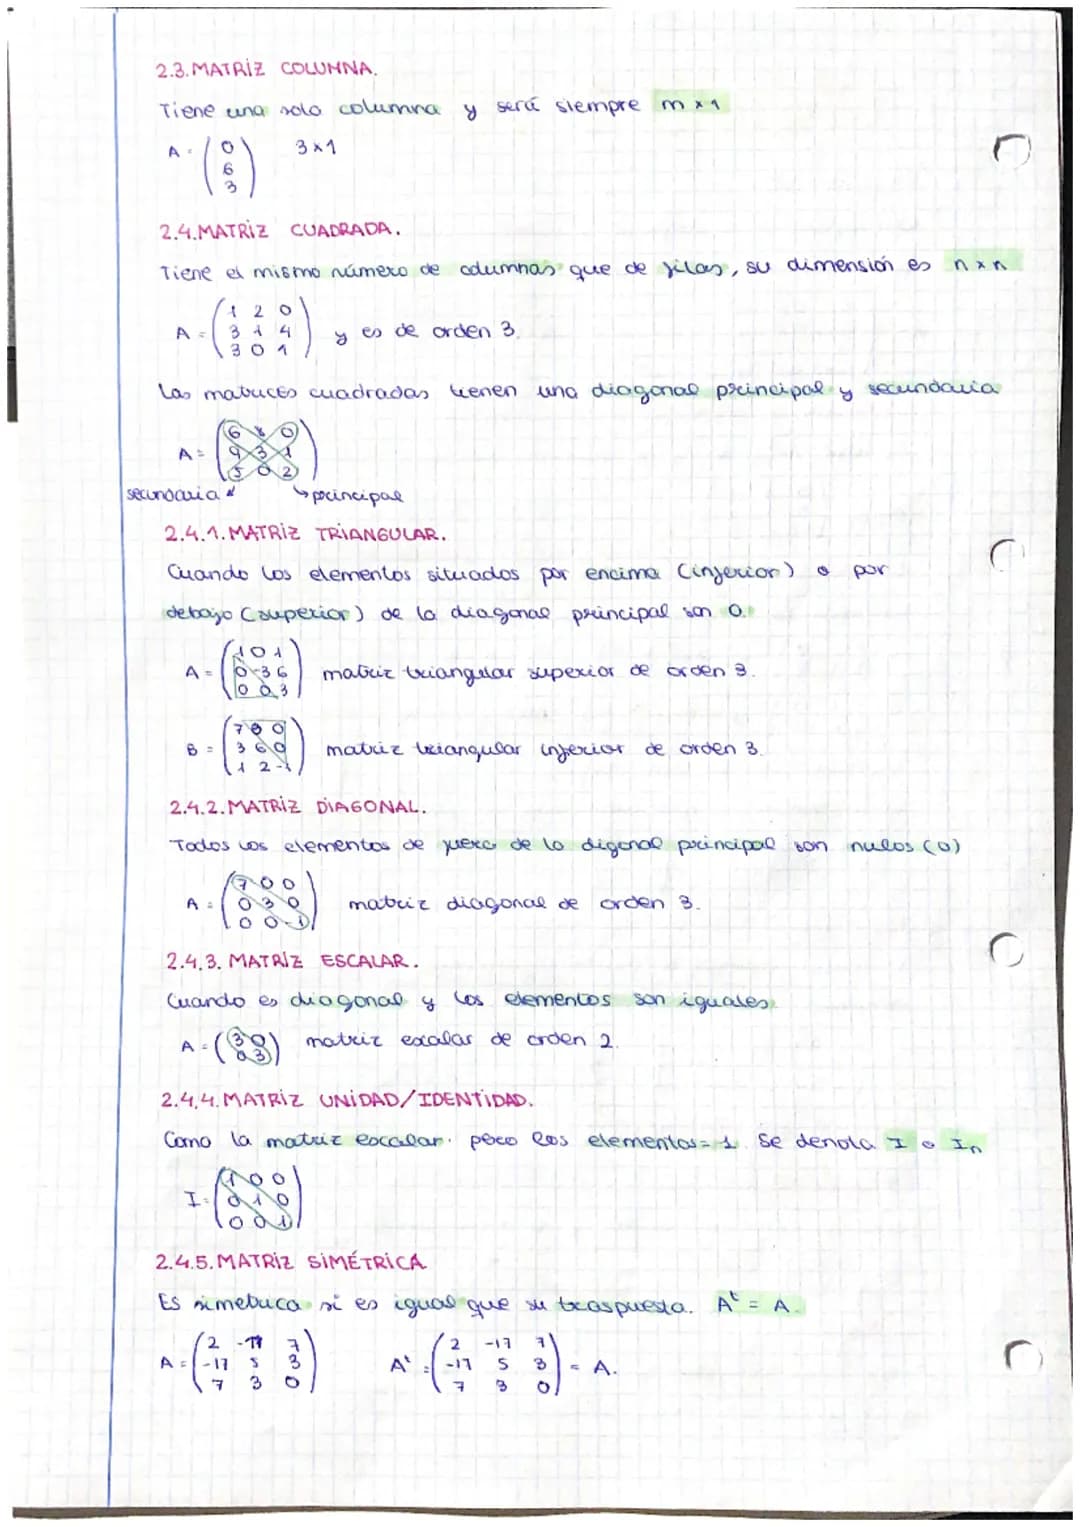 2.3. MATRIZ COLUMNA.
Tiene una solo columna y será siempre m x 1
A = ( 0 6 3 ) 3 x 1
2.4. MATRIZ CUADRADA.
Tiene el mismo número de columnas que de filas, su dimensión es n x n
A = ( 1 2 0
3 1 4
3 0 1 ) y es de orden 3.
Las matrices cuadradas tienen una diagonal principal y secundaria
A = ( 6 8 0
9 3 1
5 0 2 )
secundaria principal
2.4.1. MATRIZ TRIANGULAR.
Cuando los elementos situados por encima (inferior) o por
debajo (superior) de la diagonal principal son 0.
A = ( 1 0 1
0 -3 6
0 0 3 ) matriz triangular superior de orden 3.
B = ( 7 0 0
3 6 0
1 2 -1 ) matriz triangular inferior de orden 3.
2.4.2. MATRIZ DIAGONAL.
Todos los elementos de fuera de la digonal principal son nulos (0)
A = ( 7 0 0
0 3 0
0 0 -1 ) matriz diagonal de orden 3.
2.4.3. MATRIZ ESCALAR.
Cuando es diagonal y los elementos son iguales.
A = ( 3 0
0 3 ) matriz escalar de orden 2.
2.4.4. MATRIZ UNIDAD/IDENTIDAD.
Como la matriz escalar. pero los elementos = 1. Se denota I o In
I = ( 1 0 0
0 1 0
0 0 1 )
2.4.5. MATRIZ SIMÉTRICA
Es simetrica si es igual que su traspuesta. A^t = A.
A = ( 2 -17 7
-17 5 3
7 3 0 ) A^t = ( 2 -17 7
-17 5 3
7 3 0 ) = A.